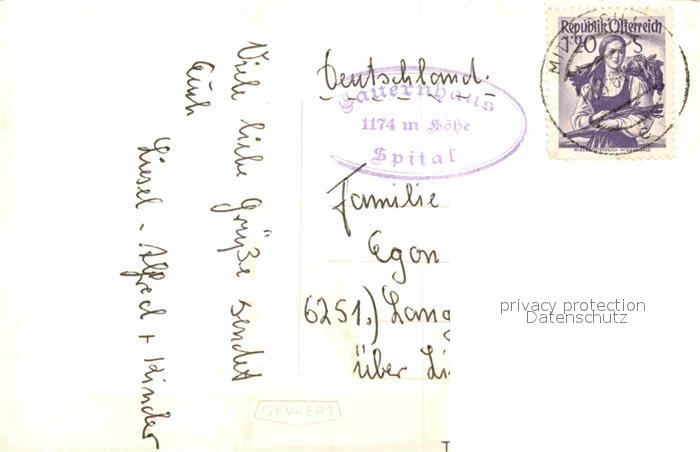 Viele liebe Grüße sendet
Euch
Liesel - Alfred + Kinder
Deutschland.
Tauernhaus
1174 m Höhe
Spital
Familie
Egon
6251.) Lang
über Li
Republik Österreich
1.20 S
privacy protection
Datenschutz
GEVAERT